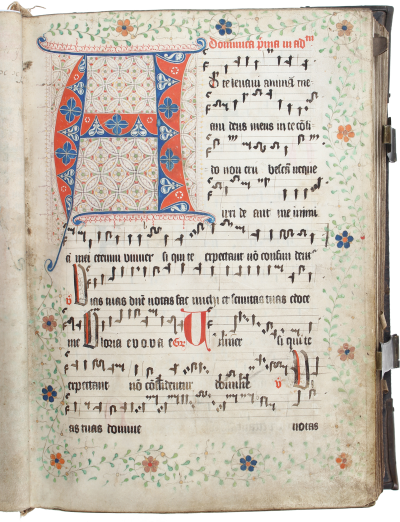 Dominica p̄ma in adu̅
A D te levavi animā me
am deus meus in te cōfi
do non eru besca̅ neque
irri de ant me inimi
ci mei etenim univer si qui te expectant nō confun dent̄
v̄ Vias tuas dn̄e notas fac michi et semitas tuas edoce
me Gloria e v o v a e Gr̄ Universi si qui te
expectant nō cōfundentur domine v̄ V
as tuas domine notas